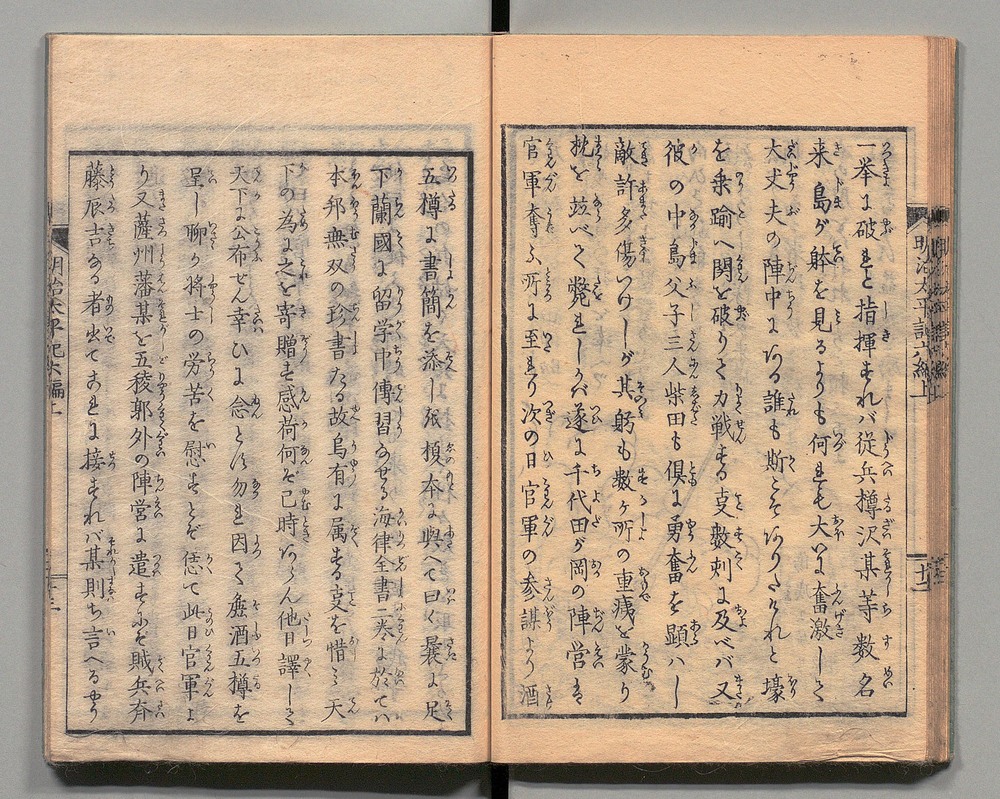 一举に破れと指揮すれバ従兵樽沢某等数名
来島が躰を見るよりも何れも大いに奮激しさ
大丈夫の陣中にある誰も斯こそありたけれと壕
を乗踰へ関を破りて力戦する事数刺に及べバ又
彼の中島父子三人柴田も倶に勇奮を顕ハし
敵許多傷つけしが其躬も数ヶ所の重痍を蒙り
枕を並べて斃れしかバ遂に千代田が岡の陣営は
官軍奪ふ所に至れり次の日官軍の参謀より酒
五樽に書簡を添へ榎本に與へて曰く曩に足
下蘭國に留学中傳習なせる海律全書二巻に於てハ
本邦無双の珍書たる故烏有に属する事を惜ミ天
下の為に之を寄贈す感荷何ぞ已時あらん他日譯して
天下に公布せん幸ひに念とする勿れ因て麁酒五樽を
呈し聊か将士の労苦を慰すとぞ恁て此日官軍よ
り又薩州藩某を五稜郭外の陣営に遣すに賊兵斉
藤辰吉なる者出てこれに接すれバ某則ち言へるやう
明治太平記六編上
十二
明治太平記六編上